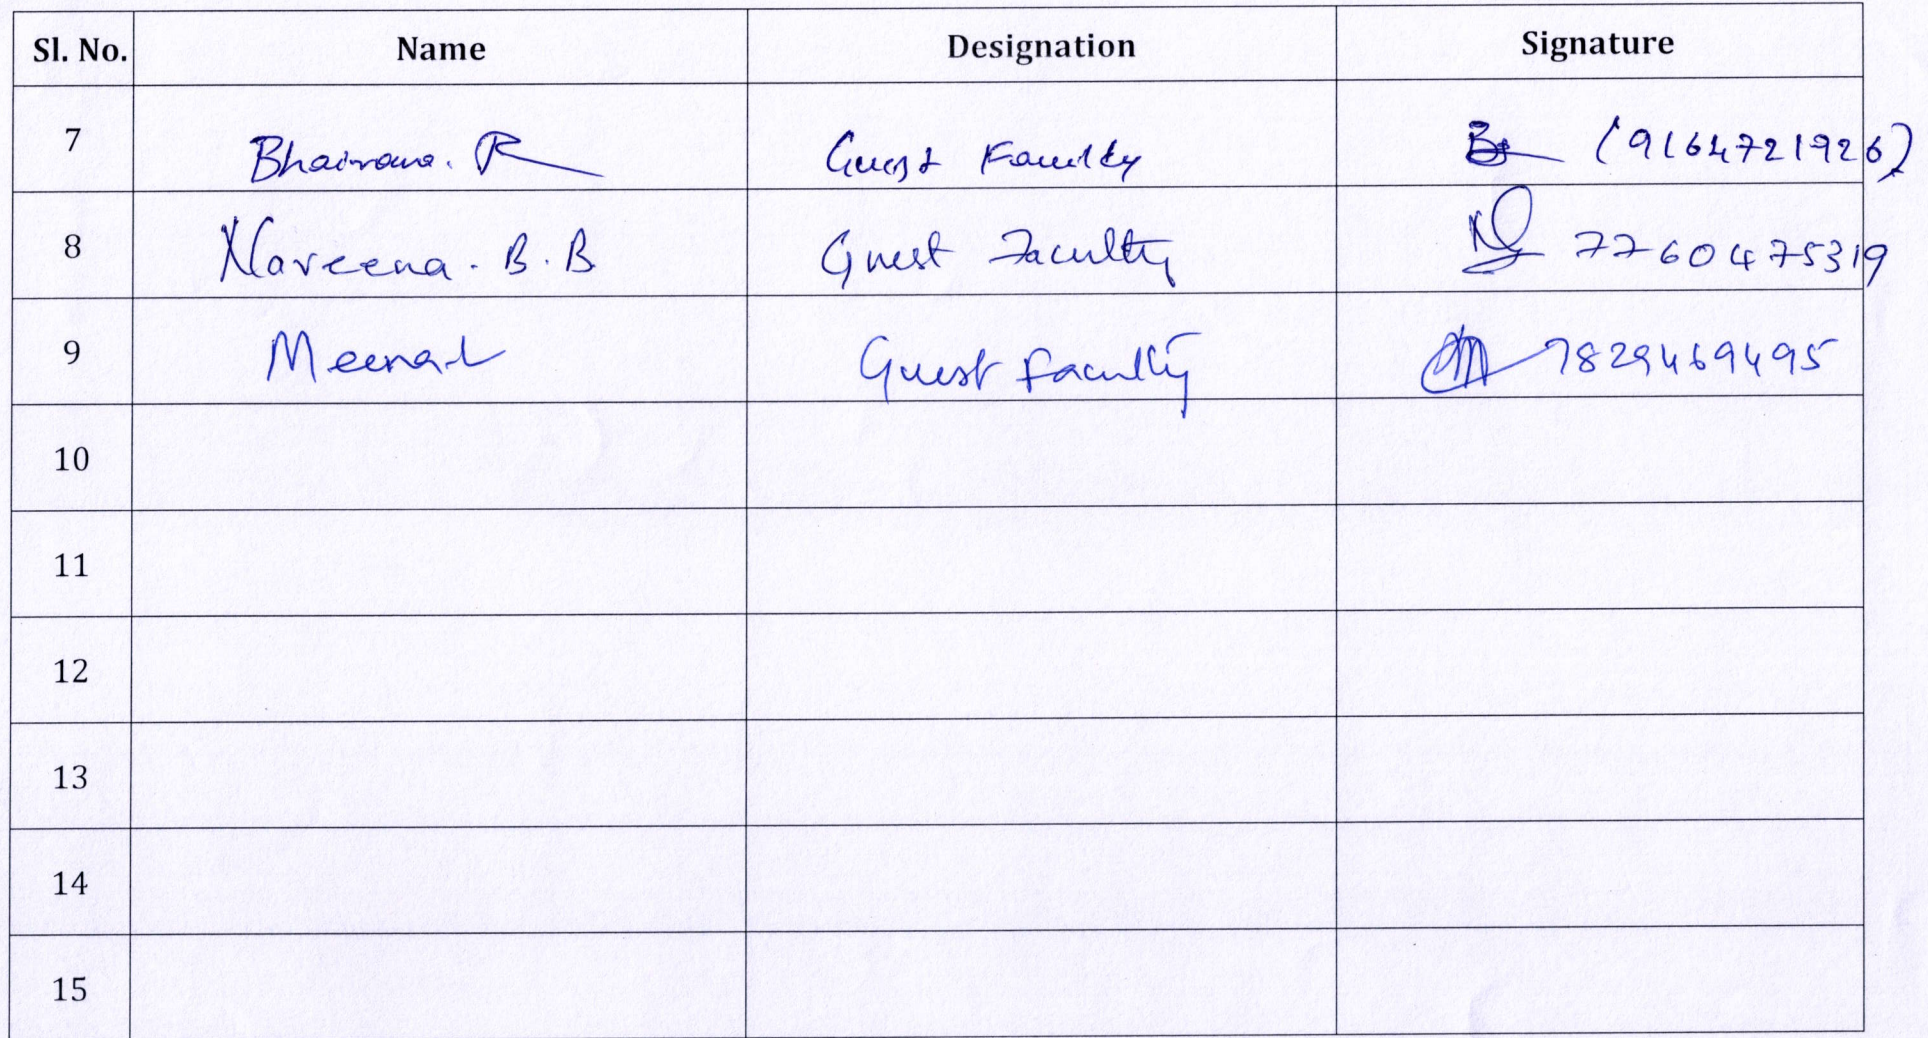 Sl. No. Name Designation Signature
7 Bhairava. R Guest Faculty (9164721926)
8 Naveena. B. B Guest Faculty 7760475319
9 Meena L Guest Faculty 7829469495
10
11
12
13
14
15